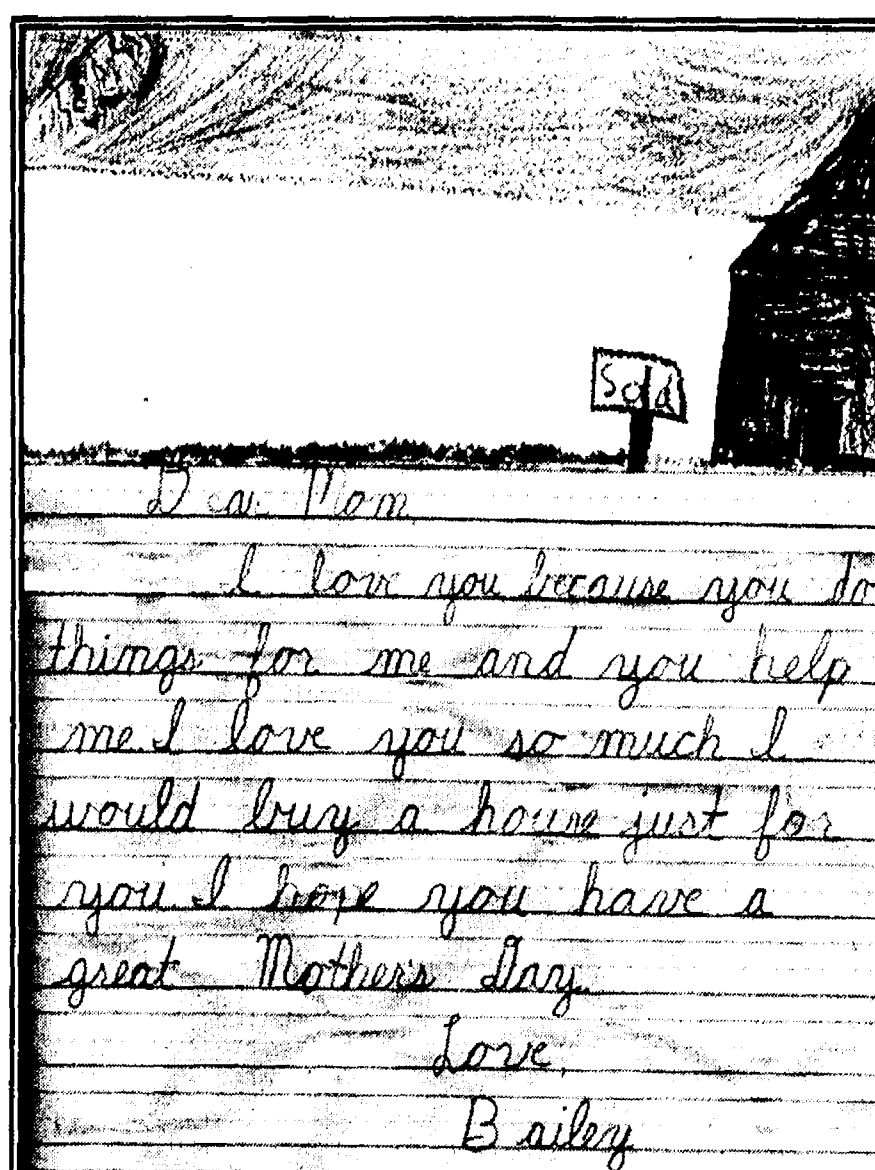 Sold
Dear Mom,
I love you because you do
things for me and you help
me. I love you so much I
would buy a house just for
you. I hope you have a
great Mother's Day.
Love,
Bailey